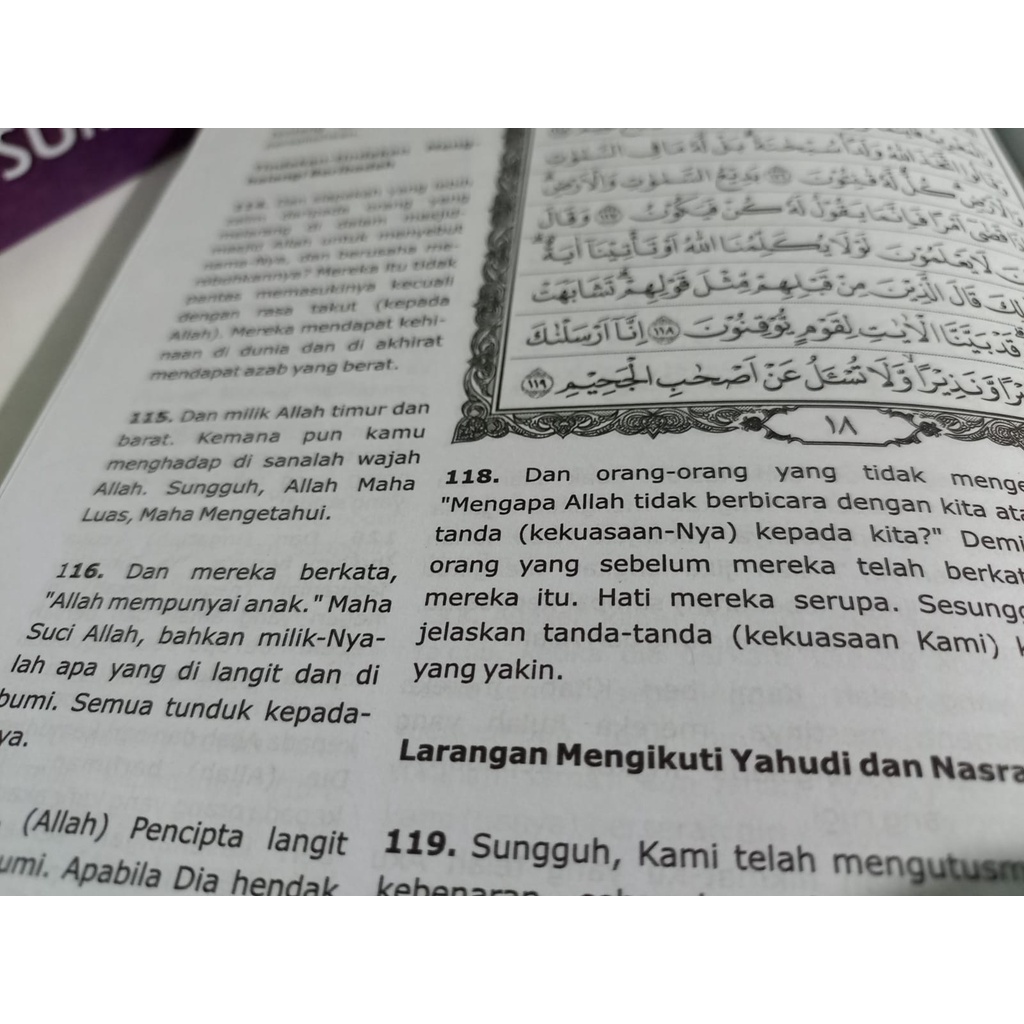 SUM
114. Dan siapakah yang lebih
zalim daripada orang yang
melarang di dalam masjid-
masjid Allah untuk menyebut
nama-Nya, dan berusaha me-
robohkannya? Mereka itu tidak
pantas memasukinya kecuali
dengan rasa takut (kepada
Allah). Mereka mendapat kehi-
naan di dunia dan di akhirat
mendapat azab yang berat.
115. Dan milik Allah timur dan
barat. Kemana pun kamu
menghadap di sanalah wajah
Allah. Sungguh, Allah Maha
Luas, Maha Mengetahui.
116. Dan mereka berkata,
"Allah mempunyai anak." Maha
Suci Allah, bahkan milik-Nya-
lah apa yang di langit dan di
bumi. Semua tunduk kepada-
ya.
(Allah) Pencipta langit
umi. Apabila Dia hendak
وَقَالُوا اتَّخَذَ اللّٰهُ وَلَدًا سُبْحٰنَهٗ بَلْ لَّهٗ مَا فِى السَّمٰوٰتِ
وَالْاَرْضِ كُلٌّ لَّهٗ قٰنِتُوْنَ ۝١١٦ بَدِيْعُ السَّمٰوٰتِ وَالْاَرْضِ
قَضٰٓى اَمْرًا فَاِنَّمَا يَقُوْلُ لَهٗ كُنْ فَيَكُوْنُ ۝١١٧ وَقَالَ
لَا يَعْلَمُوْنَ لَوْلَا يُكَلِّمُنَا اللّٰهُ اَوْ تَأْتِيْنَآ اٰيَةٌ
لِكَ قَالَ الَّذِيْنَ مِنْ قَبْلِهِمْ مِّثْلَ قَوْلِهِمْ تَشَابَهَتْ
قَدْ بَيَّنَّا الْاٰيٰتِ لِقَوْمٍ يُّوْقِنُوْنَ ۝١١٨ اِنَّآ اَرْسَلْنٰكَ
رًا وَّنَذِيْرًا وَّلَا تُسْـَٔلُ عَنْ اَصْحٰبِ الْجَحِيْمِ ۝١١٩
١٨
118. Dan orang-orang yang tidak menge
"Mengapa Allah tidak berbicara dengan kita ata
tanda (kekuasaan-Nya) kepada kita?" Demi
orang yang sebelum mereka telah berkat
mereka itu. Hati mereka serupa. Sesungg
jelaskan tanda-tanda (kekuasaan Kami) k
yang yakin.
Larangan Mengikuti Yahudi dan Nasra
119. Sungguh, Kami telah mengutusm
kebenaran